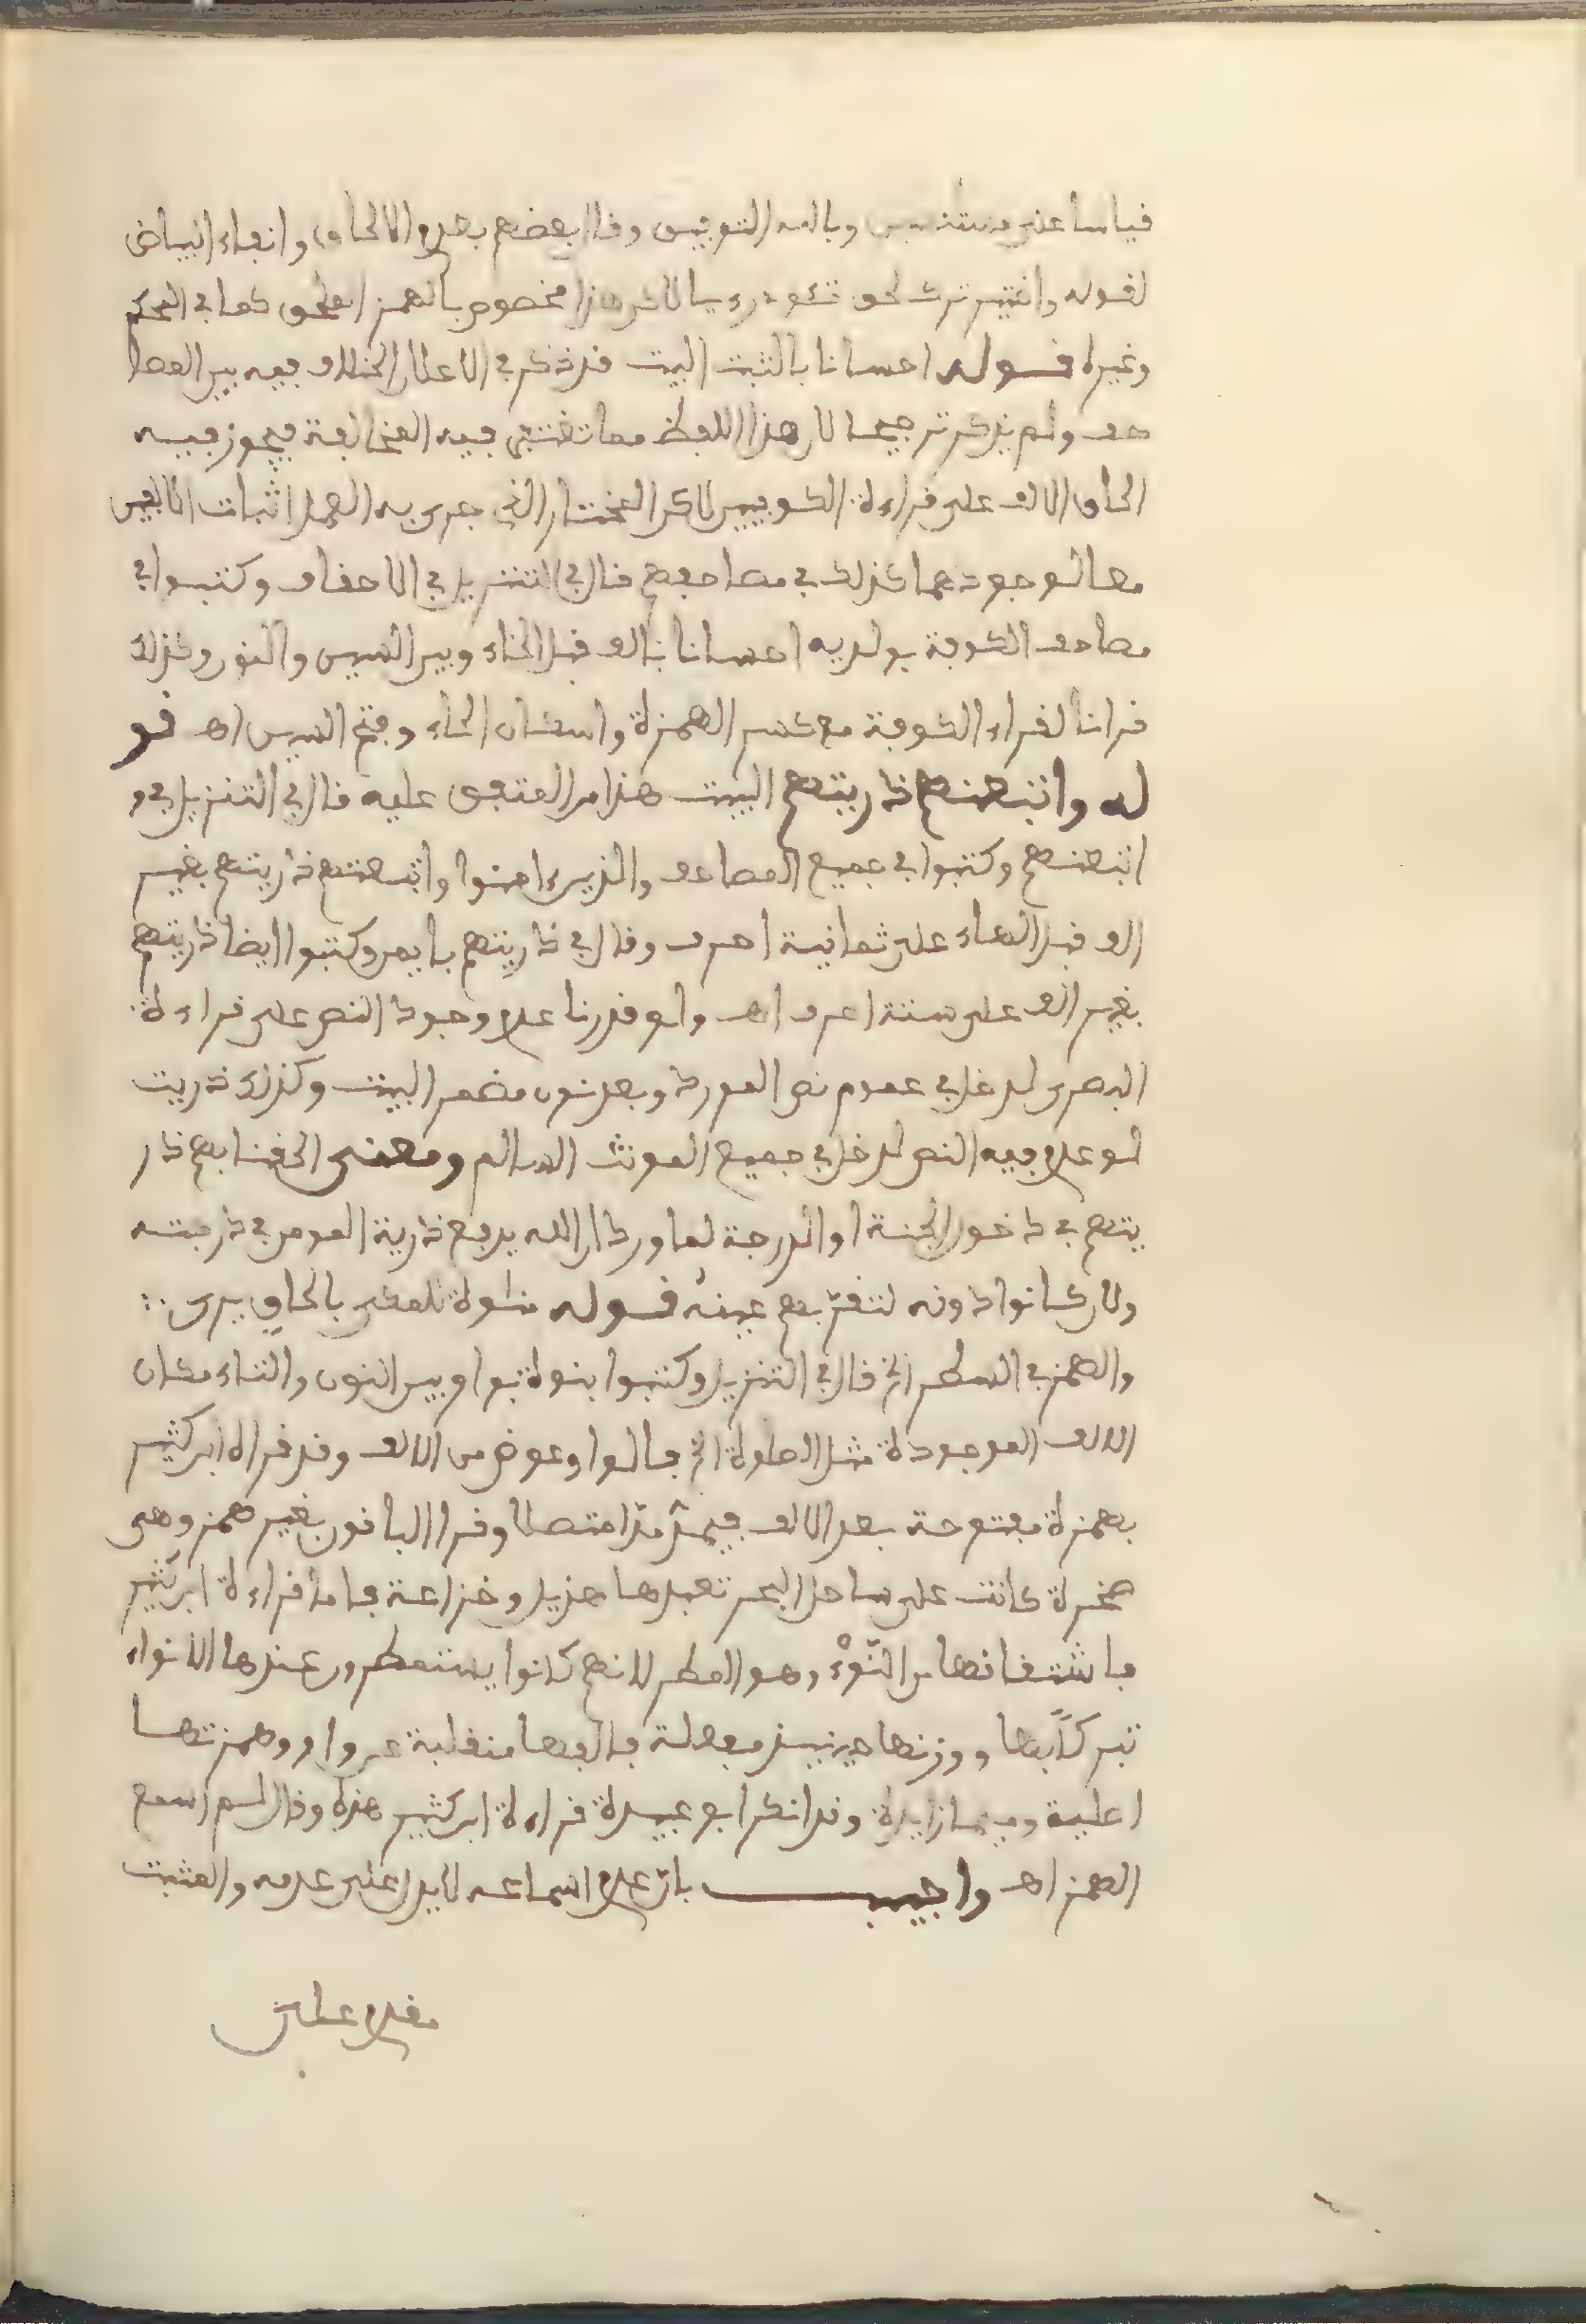 قياسا على وبالله التوفيق وقال بعضهم بعدم الالحاق وابقاء البياض
لقوله واختير ترك لحق تــٔودرءيا لاكن هذا مخصوص بالهمز الملحق كما في المحكم
وغيره قوله احسانا بالثبت البيت قد ذكر في الاعلان الخلاف فيه بين المصا
حف ولم يذكر ترجيحا لان هذا اللفظ مما تغتفر فيه المخالفة فيجوز فيه
الحاق الالف على قراءة الكوفيين لاكن المختار الذي جرى به العمل اثبات الالفين
معا لوجودهما كذلك في مصاحفهم قال في التنزيل في الاحقاف وكتبوا في
مصاحف الكوفة بولديه احسانا بالف قبل الحاء وبين السين والنون وكذلك
قرانا لقراء الكوفة مع كسر الهمزة واسكان الحاء وفتح السين اهـ قو
له واتبعنهم ذريتهم البيت هذا من المتفق عليه قال في التنزيل في و
اتبعنهم وكتبوا في جميع المصاحف والذين ءامنوا واتبعنهم ذريتهم بغير
الف قبل الهاء على ثمانية احرف وقال في ذريتهم بايمن وكتبوا ايضا ذريتهم
بغير الف على ستة احرف اهـ ولو قدرنا عدم وجود النص على قراءة
البصري لدخل في عموم نص المورد وبعد نون مضمر البيت وكذلك ذريت
لو عدم فيه النص لدخل في جميع المونث السالم ومعنى الحقنا بهم ذر
يتهم في دخول الجنة او الدرجة لما ورد ان الله يرفع ذرية المومن في درجته
وان كانوا دونه لتقر بهم عينه قوله منوة للمكي بالحاق يرى
والهمز في السطر الخ قال في التنزيل وكتبوا بنوة بواو بين النون والتاء مكان
الالف الموجودة مثل الصلوة الخ فالواو عوض من الالف وقد قراه ابن كثير
بهمزة مفتوحة بعد الالف فيمدّ مدّا متصلا وقرا الباقون بغير همز وهي
صخرة كانت على ساحل البحر تعبدها هذيل وخزاعة فاما قراءة ابن كثير
فاشتقاقها من النّوْء وهو المطر لانهم كانوا يستمطرون عندها الانواء
تبركًا بها ووزنها حينئذ مفعلة فالفها منقلبة عن واو وهمزتها
اصلية وميمها زايدة وقد انكر ابو عبيدة قراءة ابن كثير هذه وقال لم اسمع
الهمز اهـ واجيب بان عدم اسماعه لا يدل على عدمه والمثبت
مقدم على